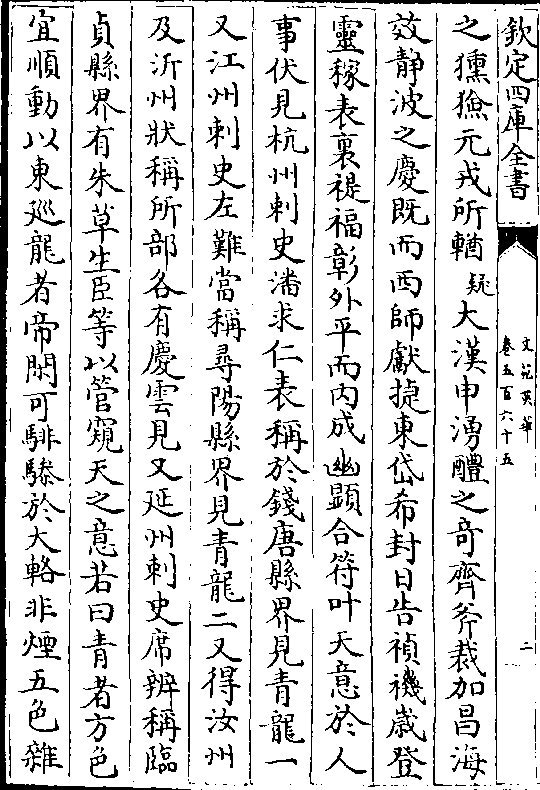 欽定四庫全書
文苑英華
卷五百六十五
二
之獯獫元戎所輶疑大漢申湧醴之奇齊斧裁加昌海
效静波之慶既而西師獻捷東岱希封日告禎禨歲登
靈稼表裏禔福彰外平而内成幽顯合符叶天意於人
事伏見杭州刺史潘求仁表稱於錢唐縣界見青龍一
又江州刺史左難當稱尋陽縣界見青龍二又得汝州
及沂州狀稱所部各有慶雲見又延州刺史席辨稱臨
貞縣界有朱草生臣等以管窺天之意若曰青者方色
宜順動以東廵龍者帝閑可騑驂於大輅非煙五色雜